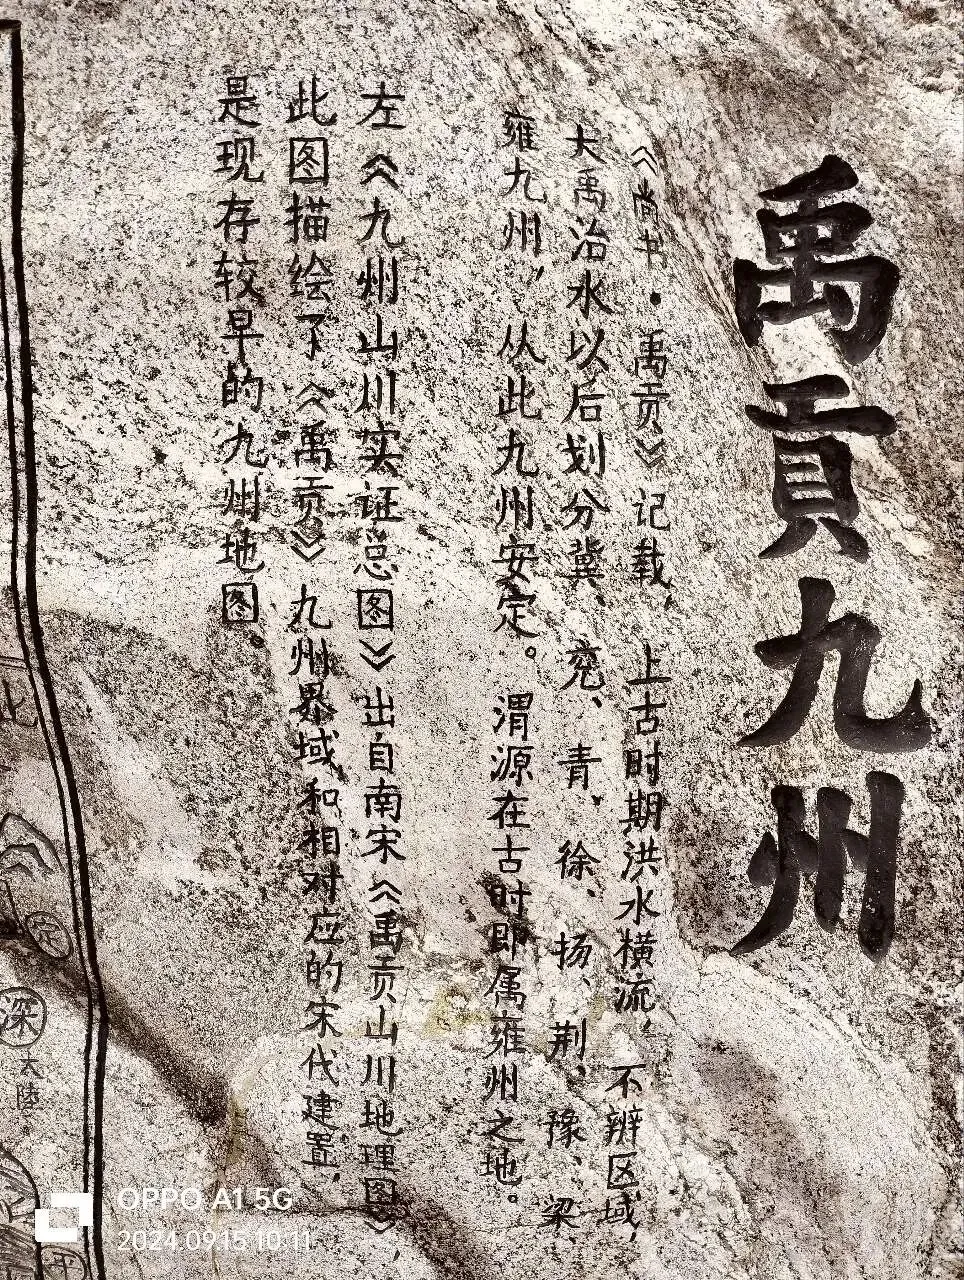 禹貢九州
《尚书·禹贡》记载，上古时期洪水横流，不辨区域，
大禹治水以后划分冀、兖、青、徐、扬、荆、豫、梁、
雍九州，从此九州安定。渭源在古时即属雍州之地。
左《九州山川实证总图》出自南宋《禹贡山川地理图》，
此图描绘了《禹贡》九州界域和相对应的宋代建置，
是现存较早的九州地图。
深
大陸
OPPO A1 5G
2024.09.15 10:11